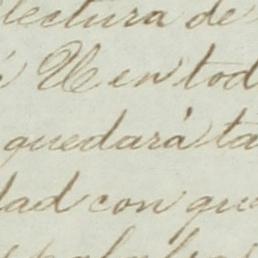 lectura de
á U en tod
quedará ta
dad con que